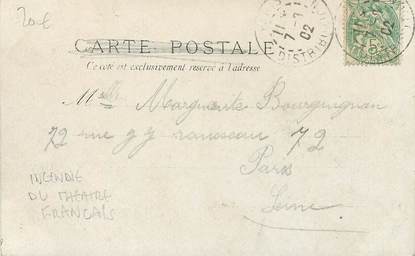 20€
CARTE POSTALE
Ce côté est exclusivement réservé à l'adresse
Mlle Marguerite Bourguignan
72 rue J J rousseau 72
Paris
Seine
INCENDIE
DU THEATRE
FRANCAIS
DISTRIB
11
7
02